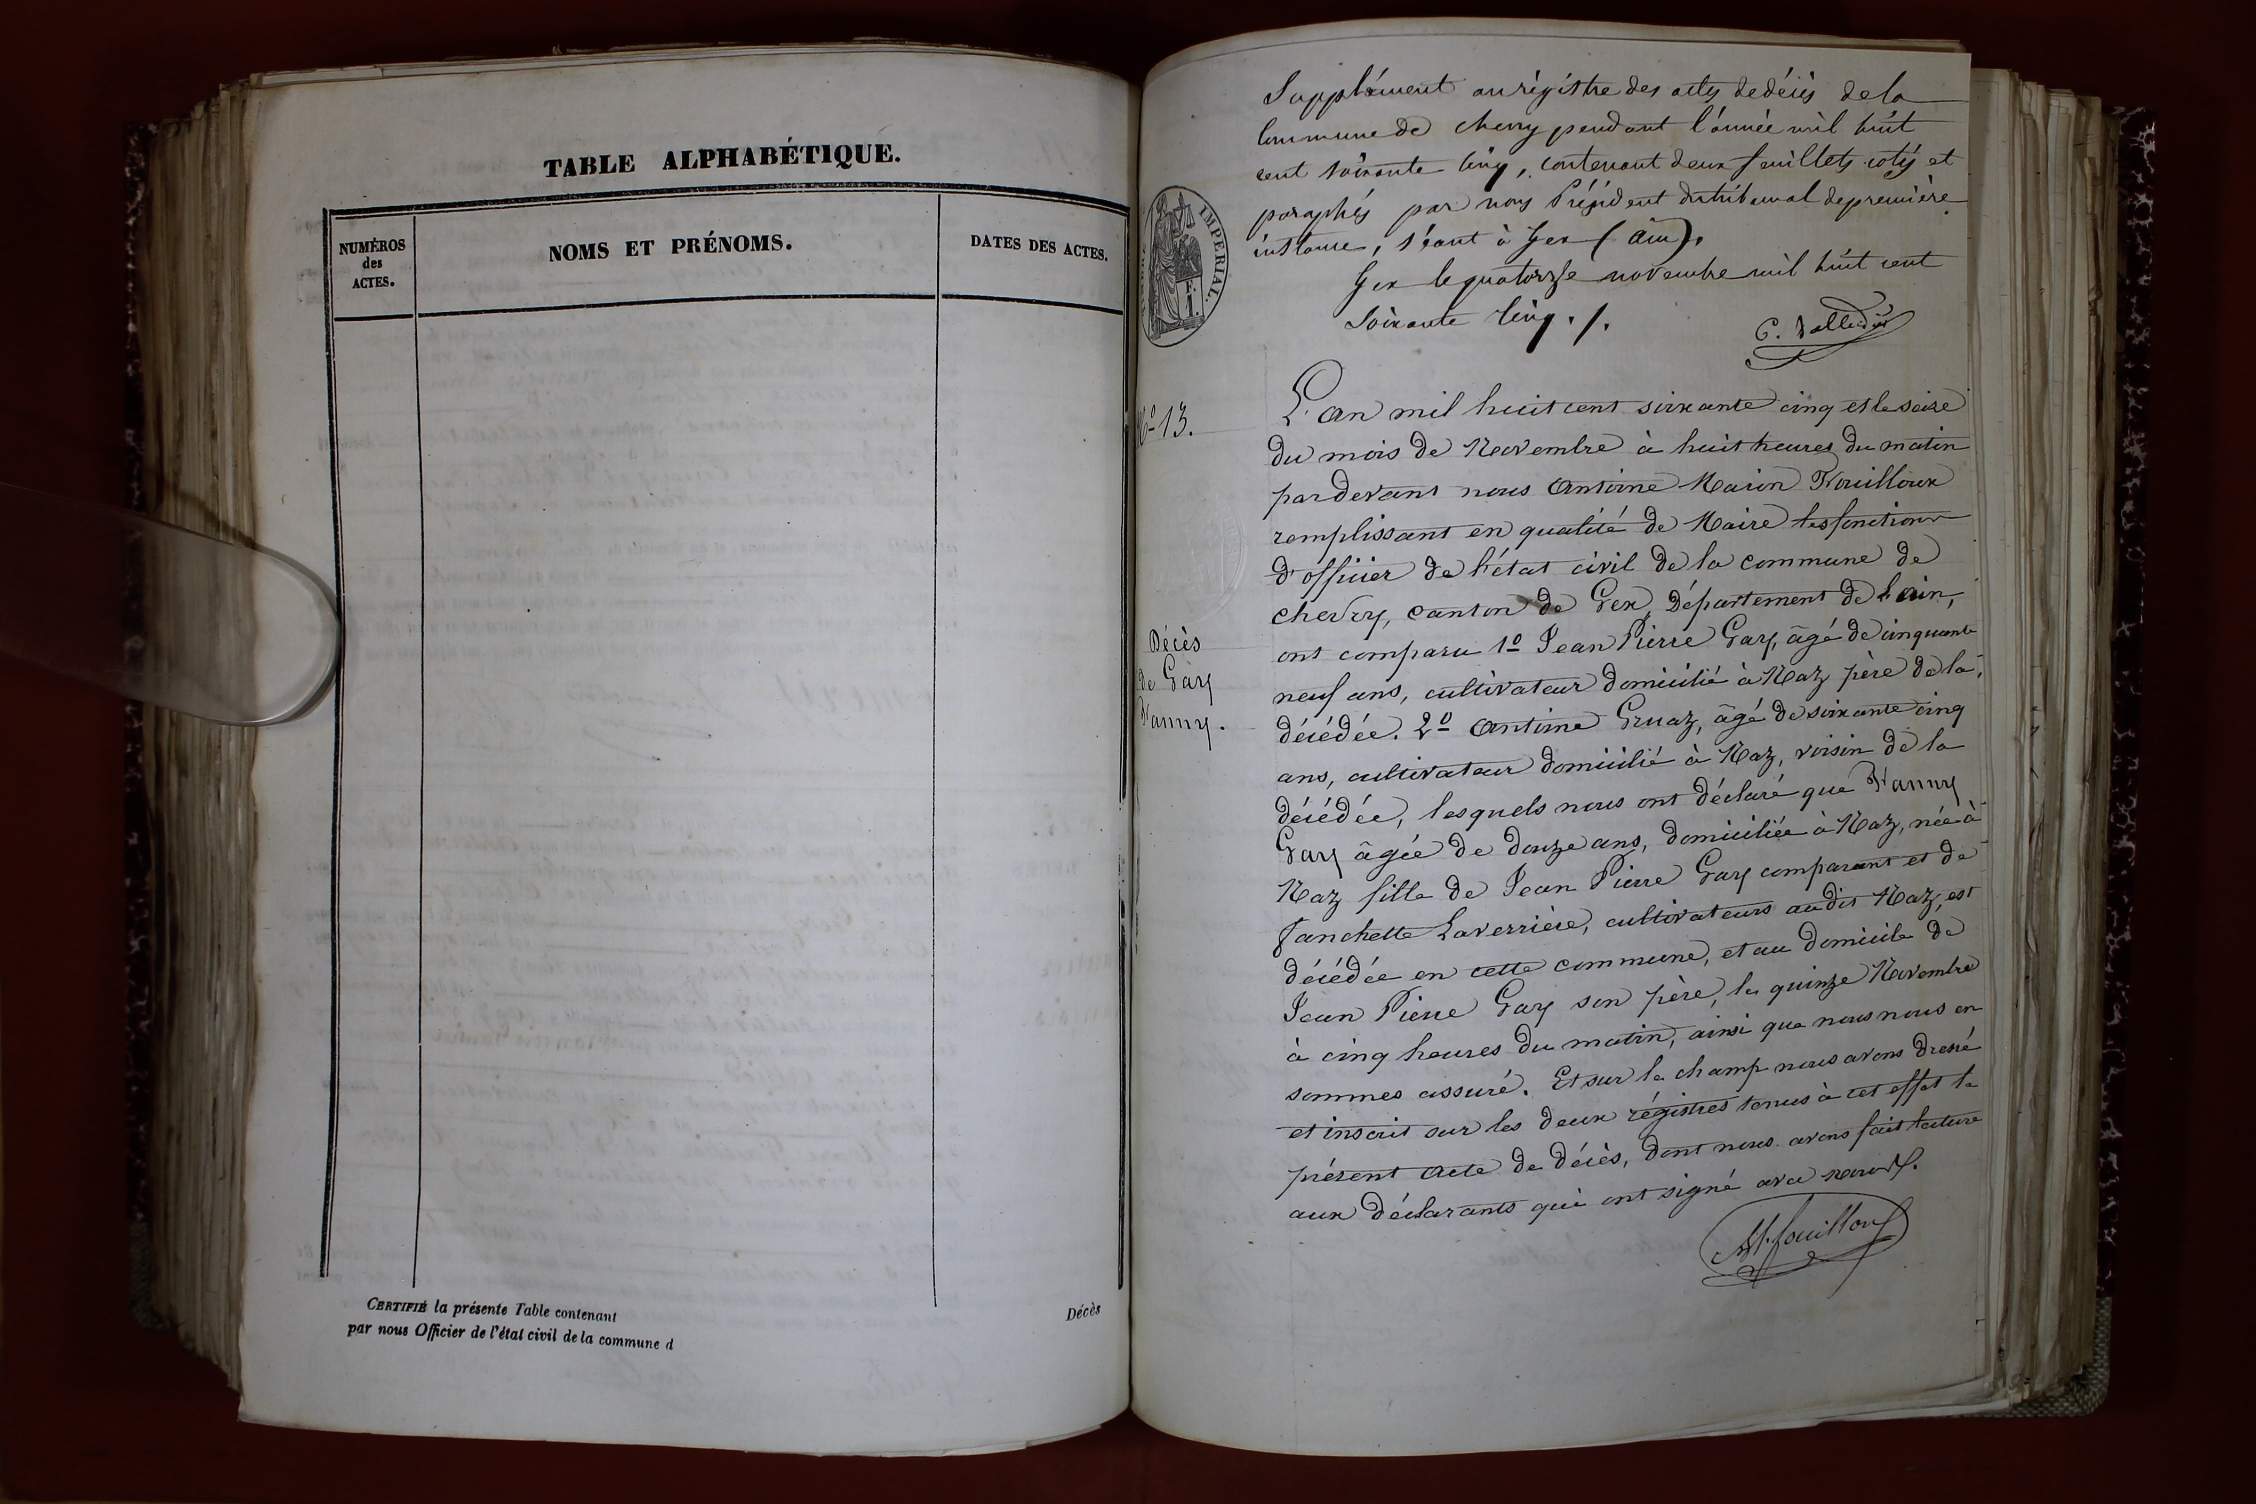 TABLE ALPHABÉTIQUE.
NUMÉROS
des
ACTES.
NOMS ET PRÉNOMS.
DATES DES ACTES.
CERTIFIÉ la présente Table contenant
par nous Officier de l'état civil de la commune d
Décès
Supplément au régistre des actes de décès de la
Commune de Chevry pendant l'année mil huit
cent soixante cinq, contenant deux feuillets cotés et
paraphés par nous Président du tribunal de première
instance, séant à Gex (Ain).
Gex le quatorze novembre mil huit cent
Soixante Cinq./.
IMPERIAL.
No 13.
L'an mil huit cent soixante cinq et le seize
du mois de Novembre à huit heures du matin
par devant nous Antoine Marin Fouilloux
remplissant en qualité de Maire les fonctions
d'officier de l'état civil de la commune de
chevry, canton de Gex, Département de l'ain,
ont comparu 1o Jean Pierre Gay, âgé de cinquante
neuf ans, cultivateur domicilié à Naz père de la
décédée. 2o Antoine Gruaz, âgé de soixante cinq
ans, cultivateur domicilié à Naz, voisin de la
décédée, lesquels nous ont déclaré que Fanny
Gay âgée de douze ans, domiciliée à Naz, née à
Naz fille de Jean Pierre Gay comparant et de
fanchette Laverrière, cultivateurs au dit Naz, est
décédée en cette commune, et au domicile de
Jean Pierre Gay son père, le quinze Novembre
à cinq heures du matin, ainsi que nous nous en
sommes assuré. Et sur le champ nous avons dressé
et inscrit sur les deux régistres tenus à cet effet le
présent acte de décès, dont nous avons fait lecture
aux déclarants qui ont signé avec nous./.
Décès
de Gay
Fanny.